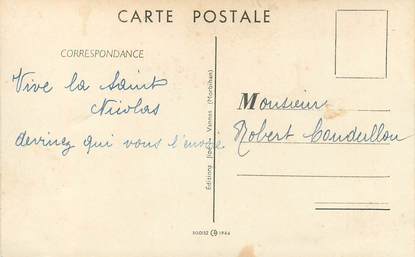 CARTE POSTALE
CORRESPONDANCE
Vive la Saint
Nicolas
devinez qui vous l'envoie
Monsieur
Robert
Éditions Vannes (Morbihan)
1944